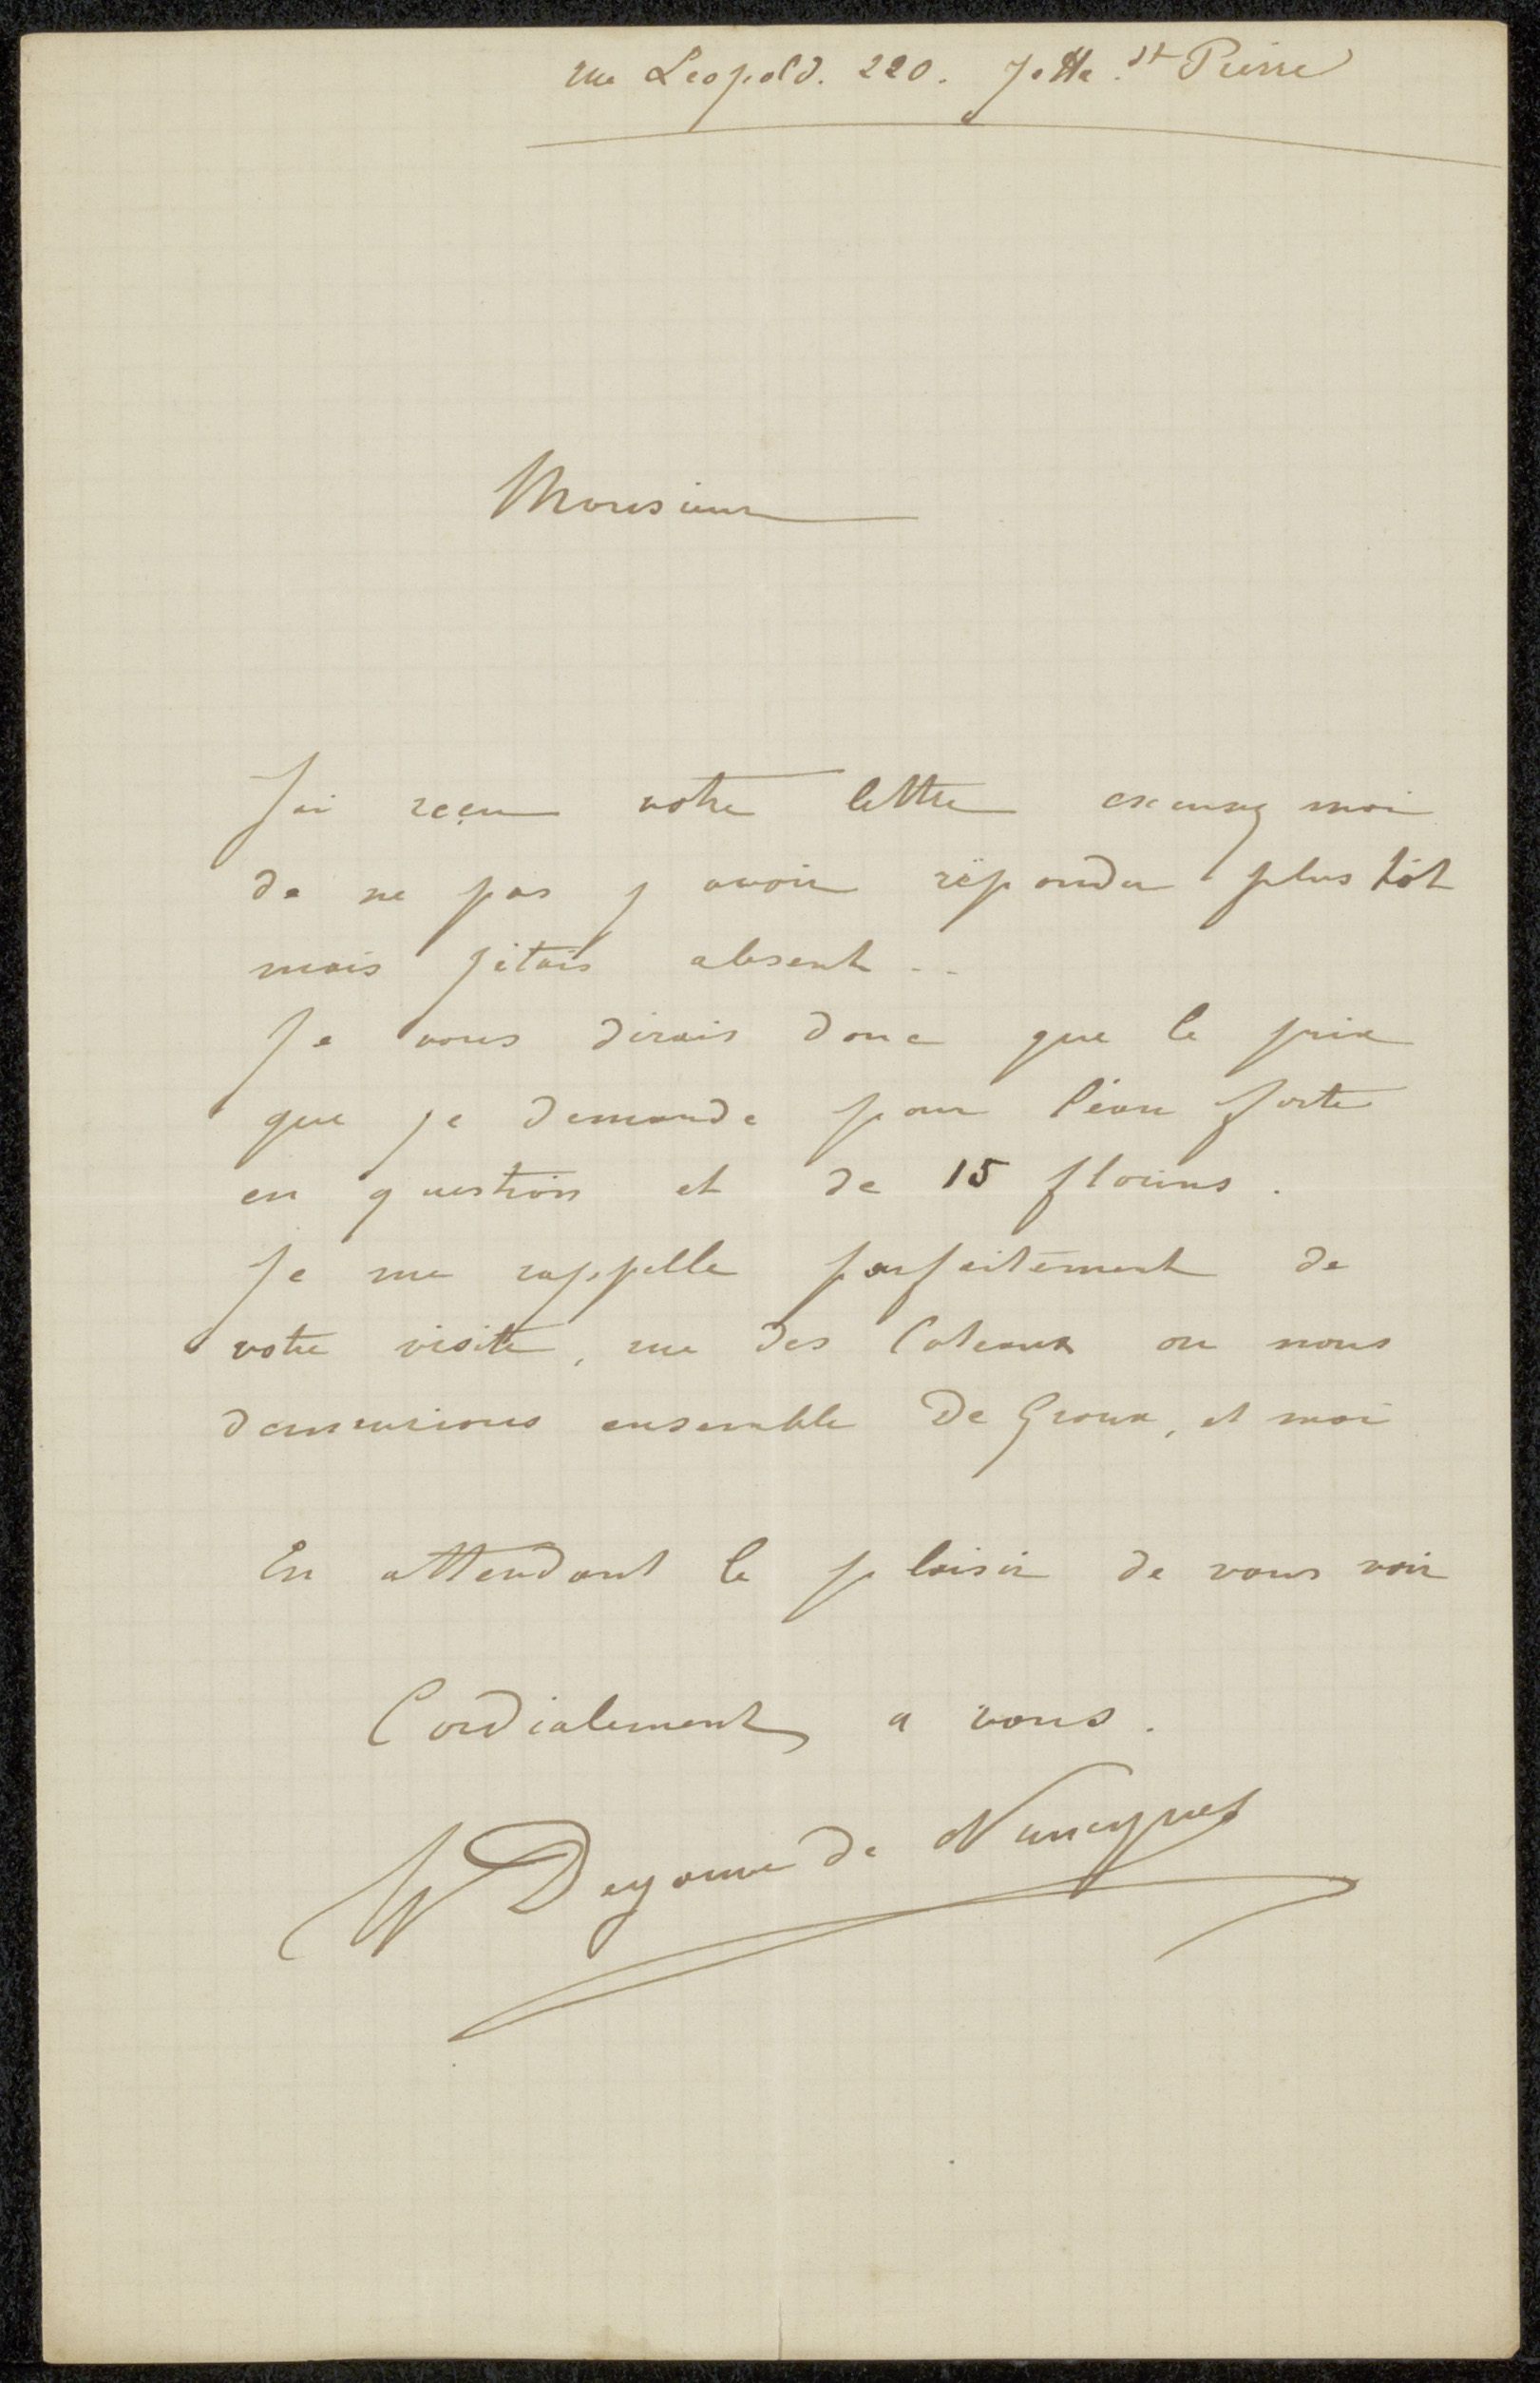 rue Leopold. 220. Jette. St Pierre
Monsieur
J'ai reçu votre lettre excusez moi
de ne pas y avoir répondu plus tôt
mais j'étais absent ..
Je vous dirais donc que le prix
que je demande pour l'eau forte
en question et de 15 florins.
Je me rappelle parfaitement de
votre visite, rue des Coteaux ou nous
demeurions ensemble De Groux, et moi
En attendant le plaisir de vous voir
Cordialement a vous.
W Degouve de Nuncques